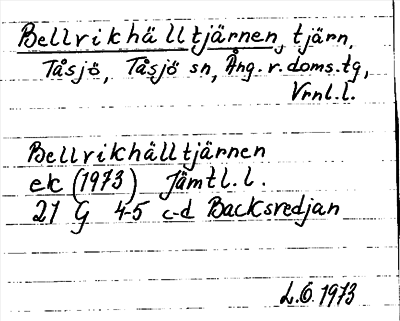 Bellrikhälltjärnen, tjärn,
Tåsjö, Tåsjö sn, Ång. v. doms. tg,
Vrnl. l.
Bellrikhälltjärnen
ek (1973) Jämtl. l.
21 G 4-5 c-d Backsredjan
L.O. 1973